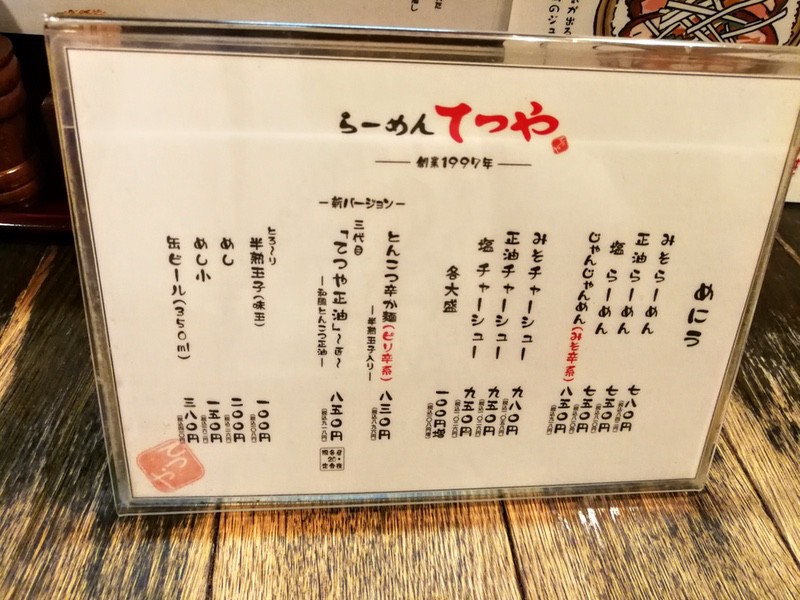 らーめん てつや
創業1997年
めにう
みそらーめん 七八〇円
正油らーめん 七五〇円
塩 らーめん 七五〇円
じゃんじゃんめん(みそ辛系) 八五〇円
みそチャーシュー 九八〇円
正油チャーシュー 九五〇円
塩 チャーシュー 九五〇円
各大盛 一〇〇円増
－新バージョン－
とんこつ辛か麺(ピリ辛系) 八三〇円
－半熟玉子入り－
三代目
「てつや正油」～匠～ 八五〇円
－和風とんこつ正油－
とろ～り
半熟玉子(味玉) 一〇〇円
めし 二〇〇円
めし小 一五〇円
缶ビール(350ml) 三八〇円